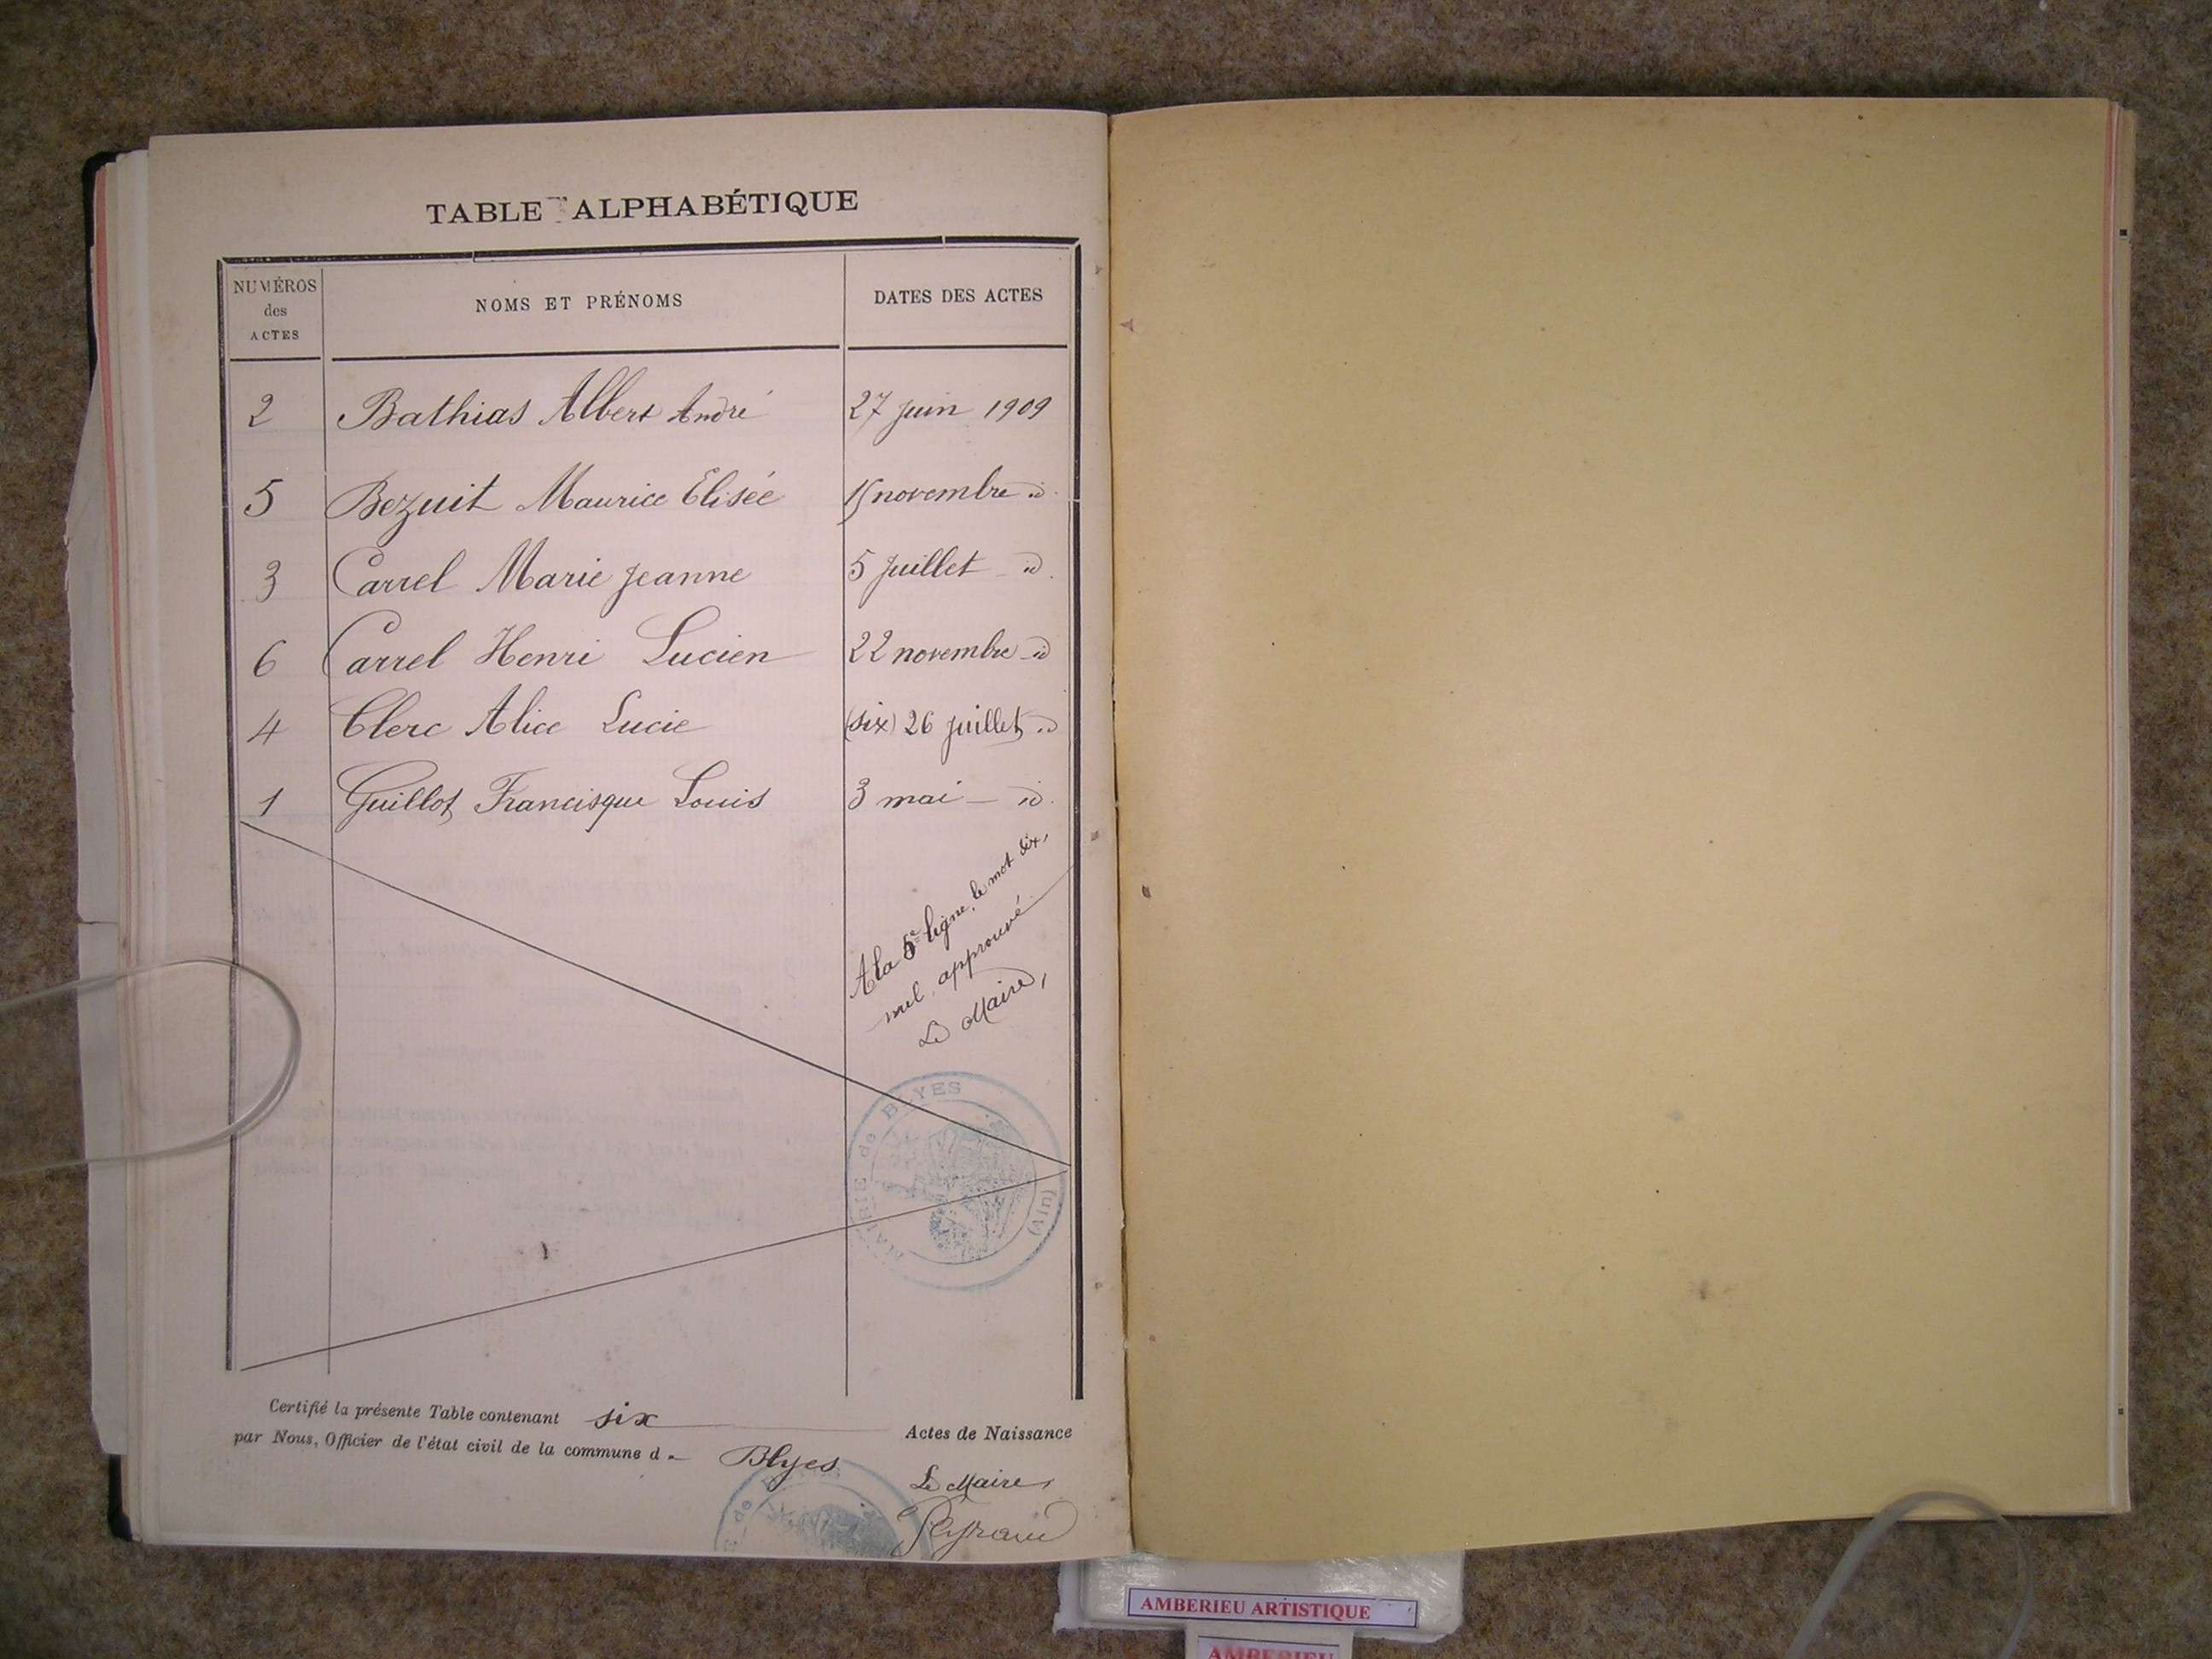 TABLE ALPHABÉTIQUE
NUMÉROS des ACTES
NOMS ET PRÉNOMS
DATES DES ACTES
2 Bathias Albert André 27 juin 1909
5 Bezuit Maurice Elisée 15 novembre id.
3 Carrel Marie Jeanne 5 Juillet id.
6 Carrel Henri Lucien 22 novembre id
4 Clerc Alice Lucie (six) 26 juillet id
1 Guillot Francisque Louis 3 mai id.
A la 5e ligne, le mot six,
nul, approuvé
Le Maire,
MAIRIE de BLYES (Ain)
Certifié la présente Table contenant six Actes de Naissance
par Nous, Officier de l'état civil de la commune de Blyes
Le Maire,
AMBERIEU ARTISTIQUE
AMBERIEU